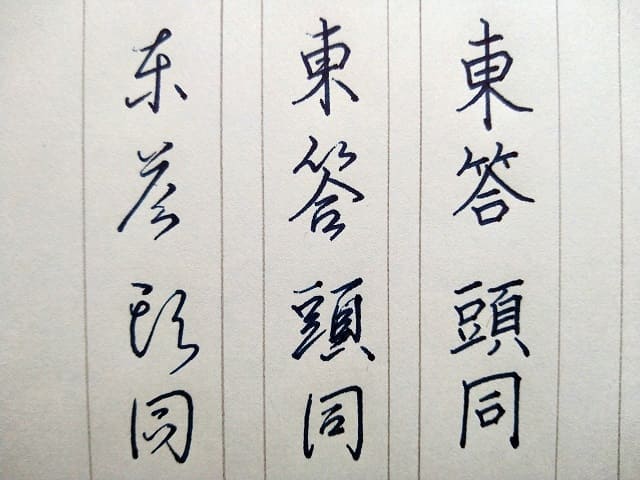 東答頭同
東答頭同
东答头同